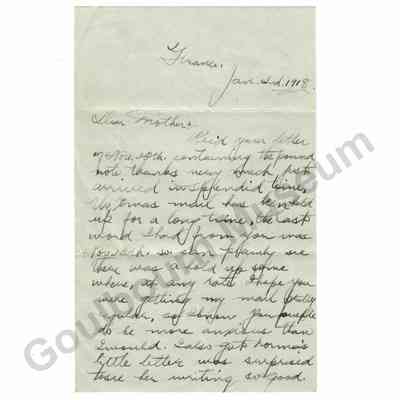 France.
Jan. 2nd. 1918.
Dear Mother:
Rec'd your letter
of Nov. 28th. containing the pound
note, thanks very much just
arrived in splendid time,
My Xmas mail has been held
up for a long time, the last
word I had from you was
so can plainly see
there was a hold up some
where, at any rate I hope you
were getting my mail
regular, as I know you people
do be more anxious than
I would. I also got Norma's
little letter was surprised
to see her writing so good.
Goulbourn Museum